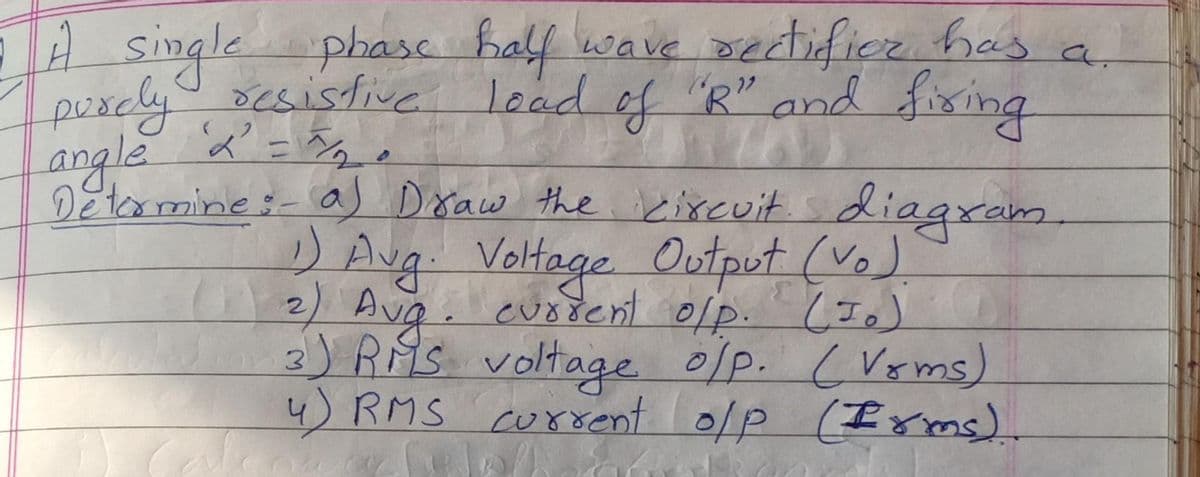 A single phase half wave rectifier has a.
purely resistive load of "R" and firing
angle 'α' = π/2.
Determine :- a) Draw the circuit diagram.
1) Avg. Voltage Output (Vo)
2) Avg. current o/p. (Io)
3) RMS voltage o/p. (Vrms)
4) RMS current o/p (Irms).